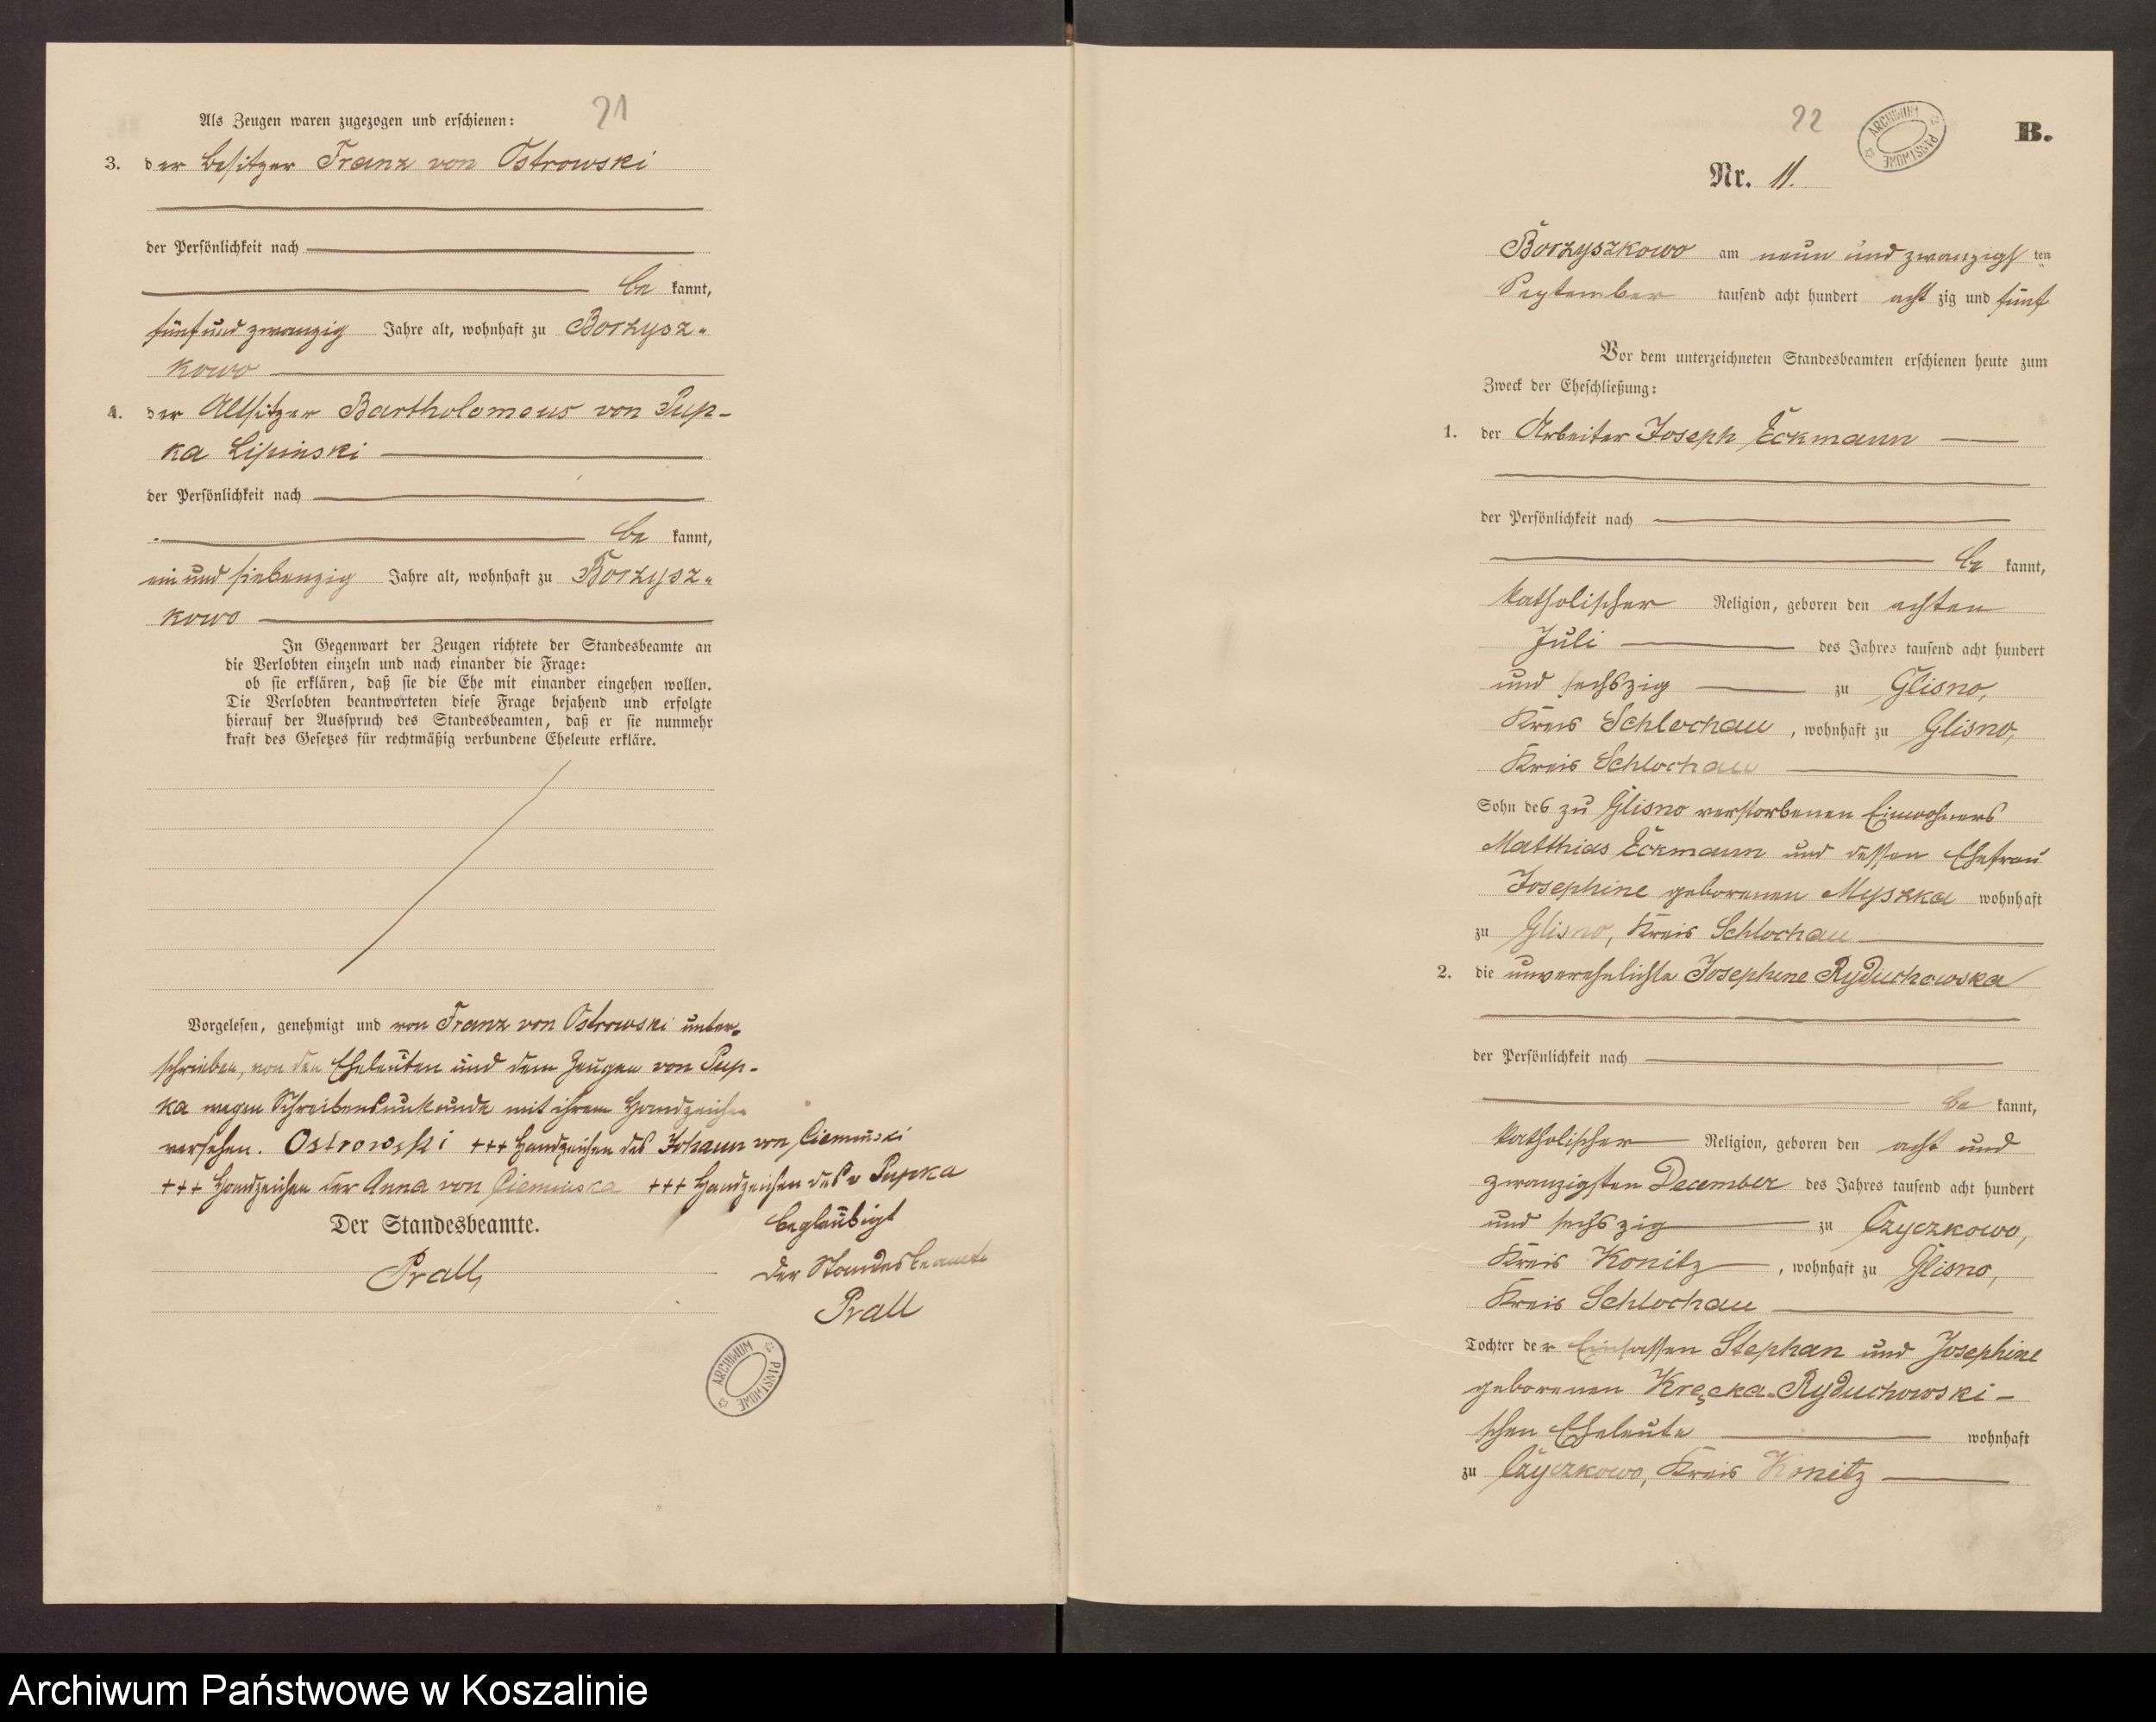 21
Als Zeugen waren zugezogen und erschienen:
3. der Besitzer Franz von Ostrowski
der Persönlichkeit nach
be kannt,
fünf und zwanzig Jahre alt, wohnhaft zu Borzysz-
kowo
4. der Altsitzer Bartholomeus von Pup-
ka Lipinski
der Persönlichkeit nach
be kannt,
ein und siebenzig Jahre alt, wohnhaft zu Borzysz-
kowo
In Gegenwart der Zeugen richtete der Standesbeamte an
die Verlobten einzeln und nach einander die Frage:
ob sie erklären, daß sie die Ehe mit einander eingehen wollen.
Die Verlobten beantworteten diese Frage bejahend und erfolgte
hierauf der Ausspruch des Standesbeamten, daß er sie nunmehr
kraft des Gesetzes für rechtmäßig verbundene Eheleute erkläre.
Vorgelesen, genehmigt und von Franz von Ostrowski unter-
schrieben, von den Eheleuten und dem Zeugen von Pup-
ka wegen Schreibensunkunde mit ihrem Handzeichen
versehen. Ostrowski +++ Handzeichen des Johann von Cieminski
+++ Handzeichen der Anna von Cieminska +++ Handzeichen des v Pupka
Der Standesbeamte.
Prall,
beglaubigt
Der Standesbeamte
Prall
ARCHIWUM PAŃSTWOWE
22
ARCHIWUM PAŃSTWOWE
B.
Nr. 11.
Borzyszkowo am neun und zwanzigs ten
September tausend acht hundert acht zig und fünf
Vor dem unterzeichneten Standesbeamten erschienen heute zum
Zweck der Eheschließung:
1. der Arbeiter Joseph Eckmann
der Persönlichkeit nach
be kannt,
katholischer Religion, geboren den achten
Juli des Jahres tausend acht hundert
und sechszig zu Glisno,
Kreis Schlochau, wohnhaft zu Glisno,
Kreis Schlochau
Sohn des zu Glisno verstorbenen Einwohners
Matthias Eckmann und dessen Ehefrau
Josephine geborenen Myszka wohnhaft
zu Glisno, Kreis Schlochau
2. die unverehelichte Josephine Ryduchowska
der Persönlichkeit nach
be kannt,
katholischer Religion, geboren den acht und
zwanzigsten December des Jahres tausend acht hundert
und sechszig zu Czyczkowo,
Kreis Konitz, wohnhaft zu Glisno,
Kreis Schlochau
Tochter der Einsassen Stephan und Josephine
geborenen Kręcka-Ryduchowski-
schen Eheleute wohnhaft
zu Czyczkowo, Kreis Konitz
Archiwum Państwowe w Koszalinie